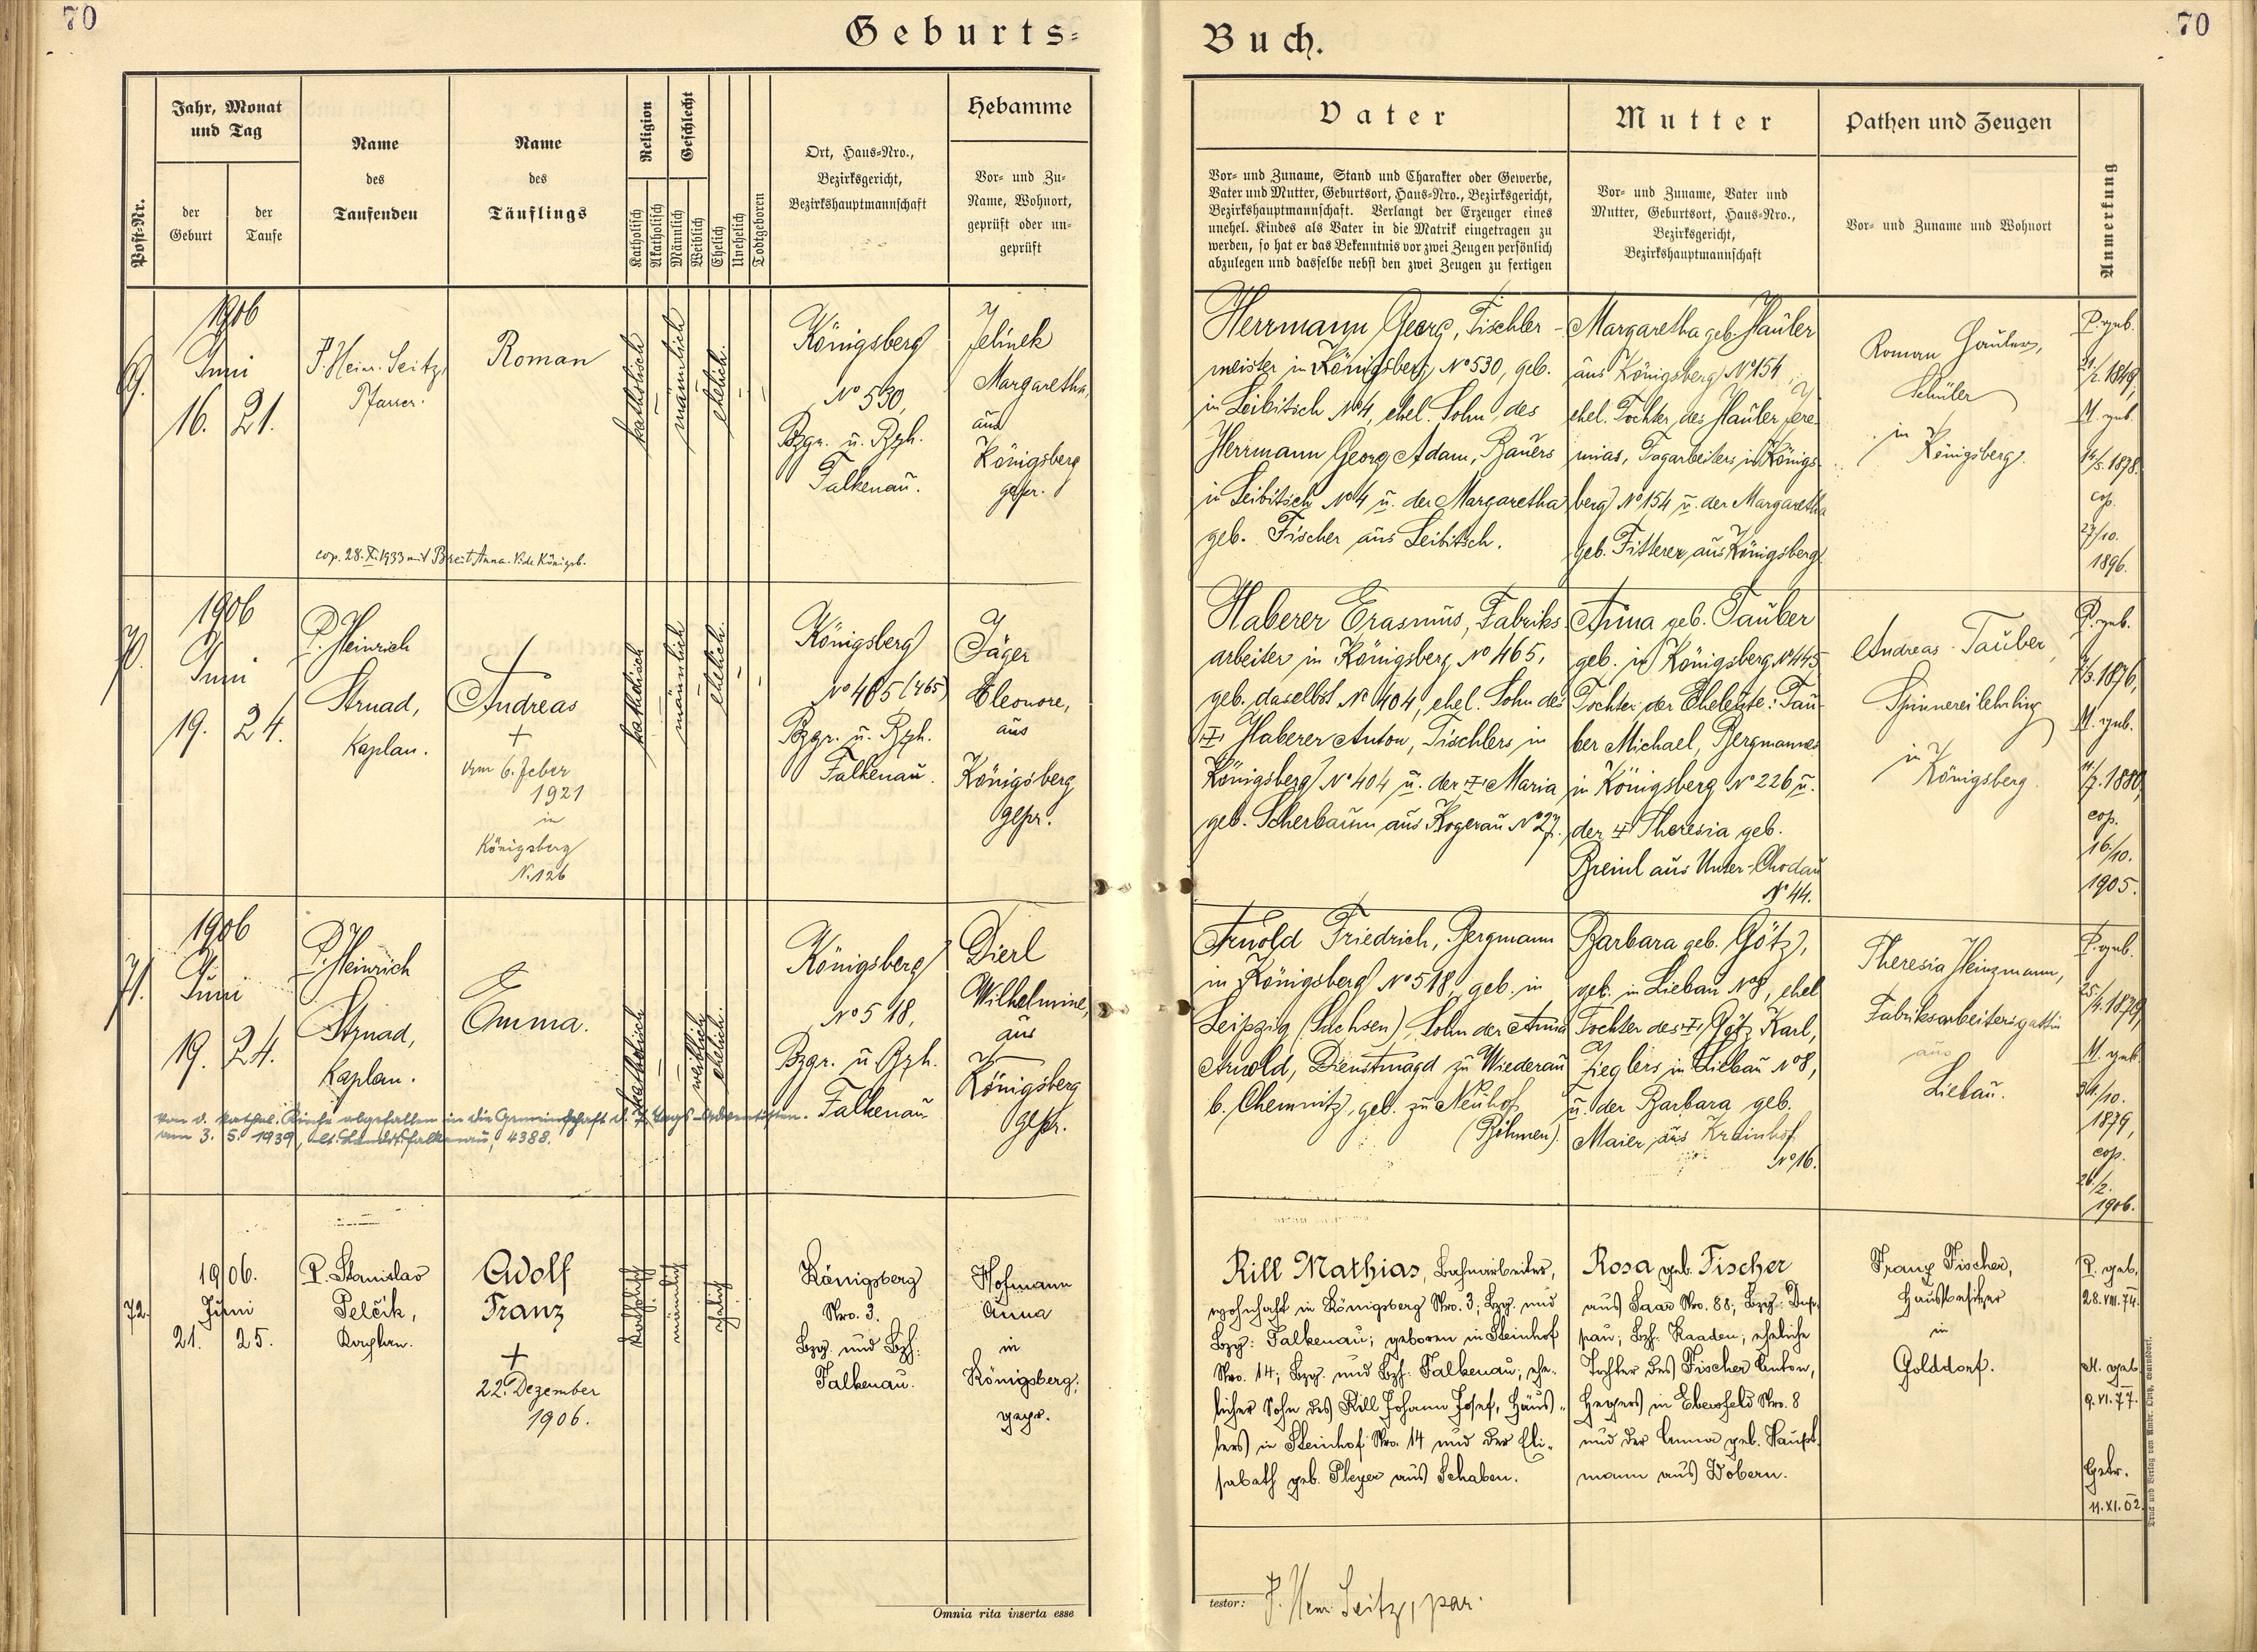 70
Geburts-
Buch.
70
Post-Nr.
Jahr, Monat
und Tag
der
Geburt
der
Taufe
Name
des
Taufenden
Name
des
Täuflings
Religion
Katholisch
Akatholisch
Geschlecht
Männlich
Weiblich
Ehelich
Unehelich
Todtgeboren
Ort, Haus-Nro.,
Bezirksgericht,
Bezirkshauptmannschaft
Hebamme
Vor- und Zu-
Name, Wohnort,
geprüft oder un-
geprüft
Vater
Vor- und Zuname, Stand und Charakter oder Gewerbe,
Vater und Mutter, Geburtsort, Haus-Nro., Bezirksgericht,
Bezirkshauptmannschaft. Verlangt der Erzeuger eines
unehel. Kindes als Vater in die Matrik eingetragen zu
werden, so hat er das Bekenntnis vor zwei Zeugen persönlich
abzulegen und dasselbe nebst den zwei Zeugen zu fertigen
Mutter
Vor- und Zuname, Vater und
Mutter, Geburtsort, Haus-Nro.,
Bezirksgericht,
Bezirkshauptmannschaft
Pathen und Zeugen
Vor- und Zuname und Wohnort
Anmerkung
69.
1906
Juni
16. 21.
P. Heinr. Seitz,
Pfarrer.
Roman
katholisch
männlich
ehelich.
Königsberg
No 530,
Bzgr. u. Bzh.
Falkenau.
Jelinek
Margaretha,
aus
Königsberg
gepr.
cop. 28.X.1933 mit Breit Anna.
Herrmann Georg, Tischler-
meister in Königsberg No 530, geb.
in Leibitsch No 4, ehel. Sohn des
Herrmann Georg Adam, Bauers
in Leibitsch No 4 u. der Margaretha
geb. Fischer aus Leibitsch.
Margaretha geb. Häuler
aus Königsberg No 154,
ehel. Tochter des Häuler Jere-
mias, Tagarbeiters in Königs-
berg No 154 u. der Margaretha
geb. Fitterer aus Königsberg.
Roman
Schüler
in
Königsberg.
P. geb.
1849,
M. geb.
14/5. 1878.
cop.
27/10.
1896.
70.
1906
Juni
19. 24.
P. Heinrich
Strnad,
Kaplan.
Andreas
+
vom 6. Feber
1921
in
Königsberg
N. 126
katholisch
männlich
ehelich.
Königsberg
No 465 (465)
Bzgr. u. Bzh.
Falkenau.
Jäger
Eleonore,
aus
Königsberg
gepr.
Haberer Erasmus, Fabriks-
arbeiter in Königsberg No 465,
geb. daselbst No 404, ehel. Sohn des
+ Haberer Anton, Tischlers in
Königsberg No 404 u. der + Maria
geb. Scherbaum aus Kogerau No 27.
Anna geb. Tauber
geb. in Königsberg No 445
Tochter der Eheleute: Tau-
ber Michael, Bergmannes
in Königsberg No 226 u.
der + Theresia geb.
Breinl aus Unter-Chodau
No 44.
Andreas Tauber,
Spinnereilehrling
in
Königsberg.
P. geb.
1876,
M. geb.
11/7. 1880,
cop.
16/10.
1905.
71.
1906
Juni
19. 24.
P. Heinrich
Strnad,
Kaplan.
Emma.
katholisch
weiblich
ehelich.
Königsberg
No 518,
Bzgr. u. Bzh.
Falkenau
Dierl
Wilhelmine,
aus
Königsberg
gepr.
von d. kathol. Kirche abgefallen in die Gemeinschaft d. 7. Tags-Adventisten.
am 3. 5. 1939, Falkenau, 4388.
Arnold Friedrich, Bergmann
in Königsberg No 518, geb. in
Leipzig (Sachsen), Sohn der Anna
Arnold, Dienstmagd zu Wiederau
b. Chemnitz, geb. zu Neuhof
(Böhmen).
Barbara geb. Götz,
geb. in Liebau No 8, ehel.
Tochter des + Götz Karl,
Zieglers in Liebau No 8,
u. der Barbara geb.
Maier aus Krainhof
No 16.
Theresia Heinzmann,
Fabriksarbeitersgattin
aus
Liebau.
P. geb.
M. geb.
1879,
cop.
26/2.
1906.
72.
1906.
Juni
21. 25.
P. Stanislav
Pelčik,
Kaplan.
Adolf
Franz
+
22. Dezember
1906.
katholisch
männlich
ehelich
Königsberg
Nro. 3.
Bzg. und Bzh:
Falkenau.
Hofmann
Anna
in
Königsberg;
gepr.
Rill Mathias, Bahnarbeiter,
wohnhaft in Königsberg Nro. 3; Bzg. und
Bzg: Falkenau; geboren in Steinhof
Nro. 14; Bzg. und Bzh: Falkenau; ehe-
licher Sohn des Rill Johann Josef, Häus-
lers in Steinhof Nro. 14 und der Eli-
sabath geb. Pleyer aus Schaben.
Rosa geb. Fischer
aus Saar Nro. 88; Bzg. Dup-
pau; Bzh. Kaaden; eheliche
Tochter des Fischer Anton,
Hegers in Ebersfeld Nro. 8
und der Anna geb. Haupt-
mann aus Dobern.
Franz Fischer,
Hausbesitzer
in
Golddorf.
P. geb.
28.VIII.74.
M. geb.
9.VI.77.
Getr.
11.XI.02.
Omnia rita inserta esse
testor: P. Hein Seitz, par.
Druck und Verlag von Ambr. Opitz, Warnsdorf.